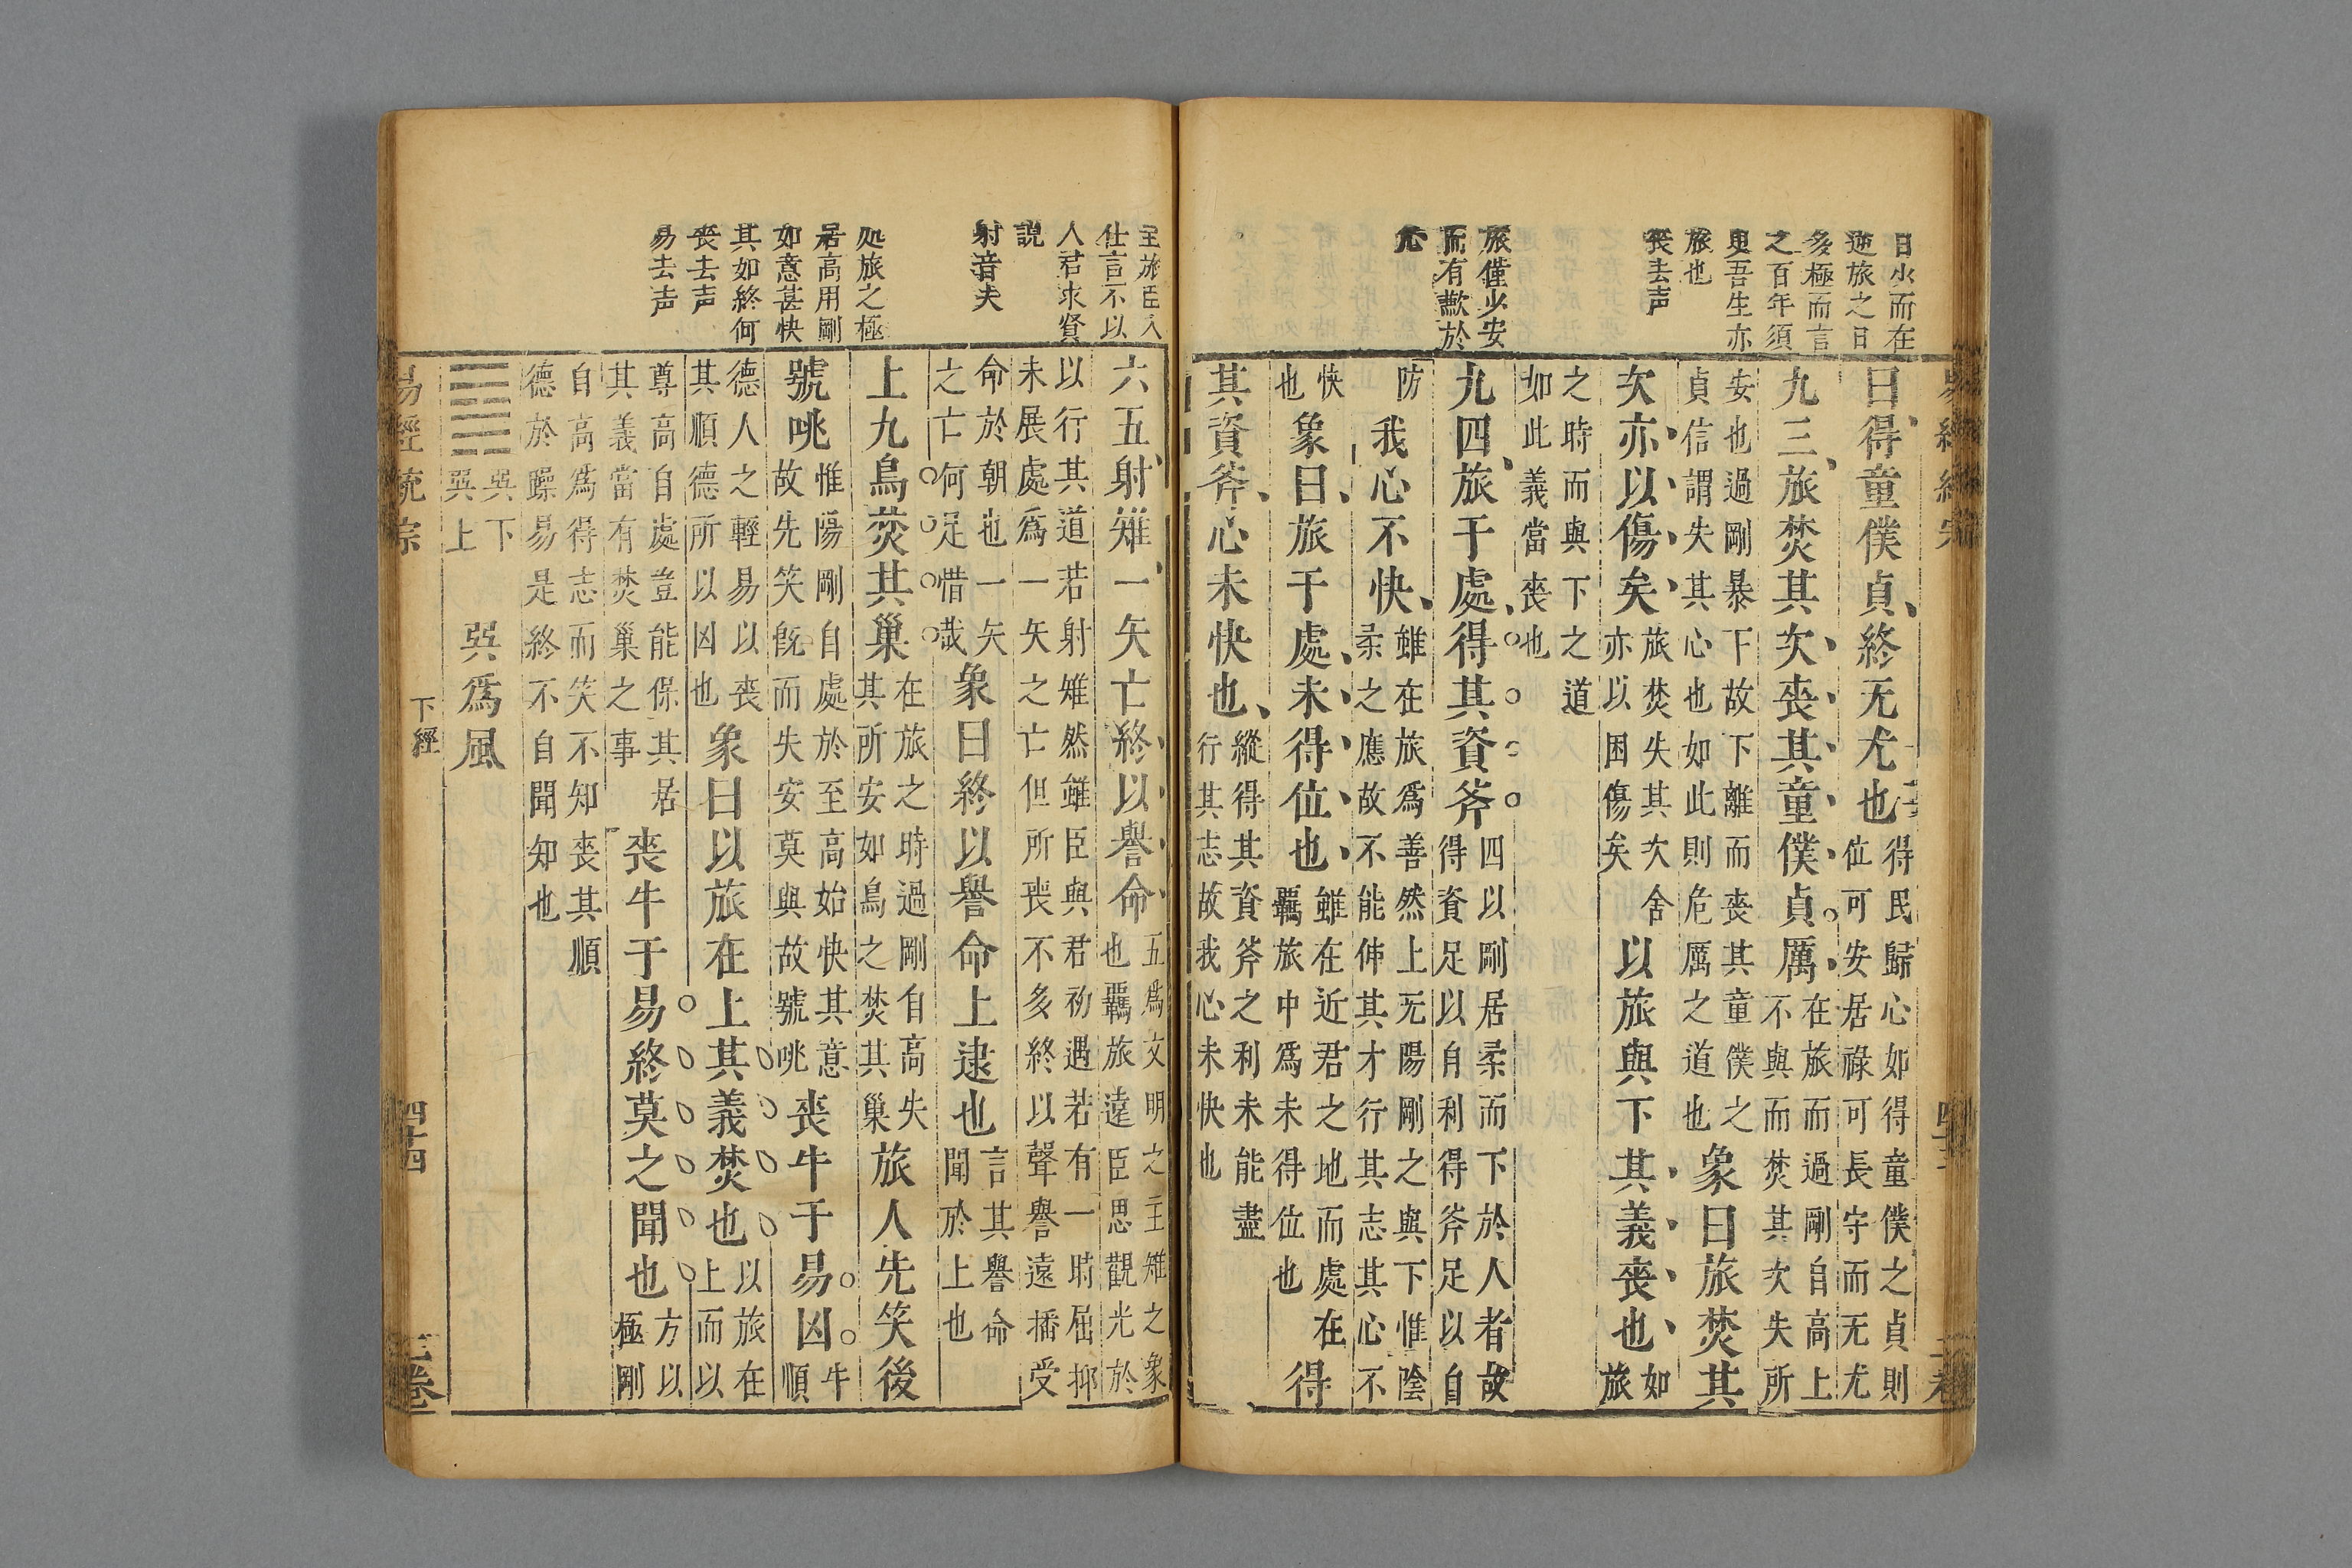 日火而在
逆旅之日
多極而言
之百年須
臾吾生亦
旅也
喪去声
旅僅少安
而有歉於
心
曰得童僕貞終无尤也得民歸心如得童僕之貞則
位可安居祿可長守而无尤
九三旅焚其次喪其童僕貞厲在旅而過剛自高上
不與而焚其次失所
安也過剛暴下故下離而喪其童僕之
貞信謂失其心也如此則危厲之道也象曰旅焚其
次亦以傷矣旅焚失其次舍
亦以困傷矣以旅與下其義喪也如
旅
之時而與下之道
如此義當喪也
九四旅于處得其資斧四以剛居柔而下於人者故
得資足以自利得斧足以自
防我心不快雖在旅爲善然上无陽剛之與下惟陰
柔之應故不能伸其才行其志其心不
快
也象曰旅于處未得位也雖在近君之地而處在
羈旅中爲未得位也得
其資斧心未快也縱得其資斧之利未能盡
行其志故我心未快也
易經統宗
仕言不以
人君求賢
說
射音夫
処旅之極
居高用剛
如意甚快
其如終何
喪去声
易去声
六五射雉一矢亡終以譽命五爲文明之主雉之象
也羈旅遠臣思觀光於
以行其道若射雉然雖臣與君初遇若有一時屈抑
未展處爲一矢之亡但所喪不多終以聲譽遠播受
命於朝也一矢
之亡何足惜哉象曰終以譽命上逮也言其譽命
聞於上也
上九鳥焚其巢在旅之時過剛自高失
其所安如鳥之焚其巢旅人先笑後
號咷惟陽剛自處於至高始快其意
故先笑旣而失安莫與故號咷喪牛于易凶牛
順
德人之輕易以喪
其順德所以凶也象曰以旅在上其義焚也以旅在
上而以
尊高自處豈能保其居
其義當有焚巢之事喪牛于易終莫之聞也方以
極剛
自高爲得志而笑不知喪其順
德於躁易是終不自聞知也
䷸巽下
巽上巽爲風
易經統宗
下經
四十四
三卷